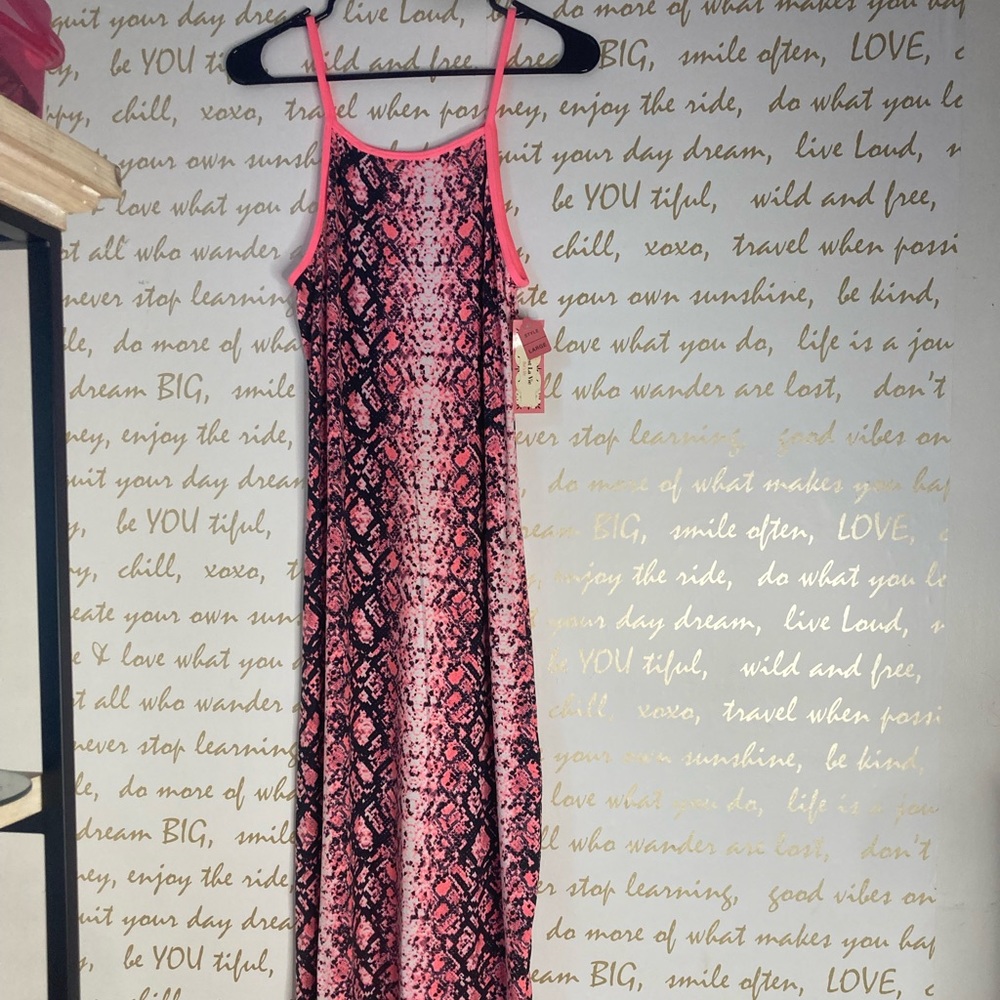 quit your day dream, live Loud, do more of what makes you hap
be YOU ti wild and free, dream BIG, smile often, LOVE, c
ppy, chill, xoxo, travel when possi ney, enjoy the ride, do what you lo
your own sunsh quit your day dream, live Loud, n
& love what you do be YOU tiful, wild and free,
ot all who wander a chill, xoxo, travel when possi
never stop learning ate your own sunshine, be kind,
le, do more of wha love what you do, life is a jou
STYLE
LARGE
La Vie
dream BIG, smile ll who wander are lost, don't
ney, enjoy the ride, ever stop learning, good vibes on
quit your day dream do more of what makes you hap
y, be YOU tiful, ream BIG, smile often, LOVE, c
py, chill, xoxo, t enjoy the ride, do what you lo
eate your own suns your day dream, live Loud, n
e & love what you d be YOU tiful, wild and free,
t all who wander a chill, xoxo, travel when possi
never stop learning your own sunshine, be kind,
le, do more of wha love what you do, life is a jou
dream BIG, smile ll who wander are lost, don't
ney, enjoy the ride, er stop learning, good vibes on
quit your day drea do more of what makes you hap
y, be YOU tiful, eam BIG, smile often, LOVE, c
chill